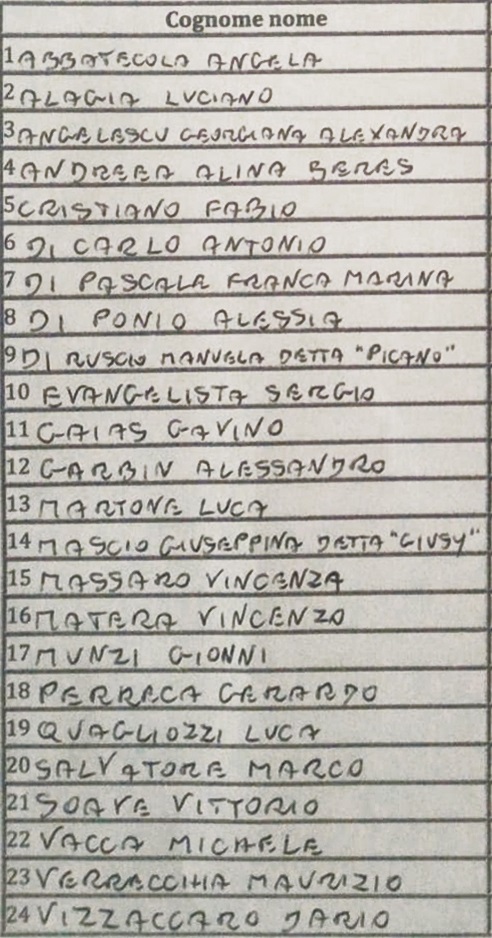 Cognome nome
1 ABBATECOLA ANGELA
2 ALAGIA LUCIANO
3 ANGELESCU GEORGIANA ALEXANDRA
4 ANDREEA ALINA BERES
5 CRISTIANO FABIO
6 DI CARLO ANTONIO
7 DI PASCALE FRANCA MARINA
8 DI PONIO ALESSIA
9 DI RUSCIO MANUELA DETTA "PICANO"
10 EVANGELISTA SERGIO
11 GAIAS GAVINO
12 GARBIN ALESSANDRO
13 MARTONE LUCA
14 MASCIO GIUSEPPINA DETTA "GIUSY"
15 MASSARO VINCENZA
16 MATERA VINCENZO
17 MUNZI GIONNI
18 PERRECA GERARDO
19 QUAGLIOZZI LUCA
20 SALVATORE MARCO
21 SOAVE VITTORIO
22 VACCA MICHELE
23 VERRECCHIA MAURIZIO
24 VIZZACCARO DARIO